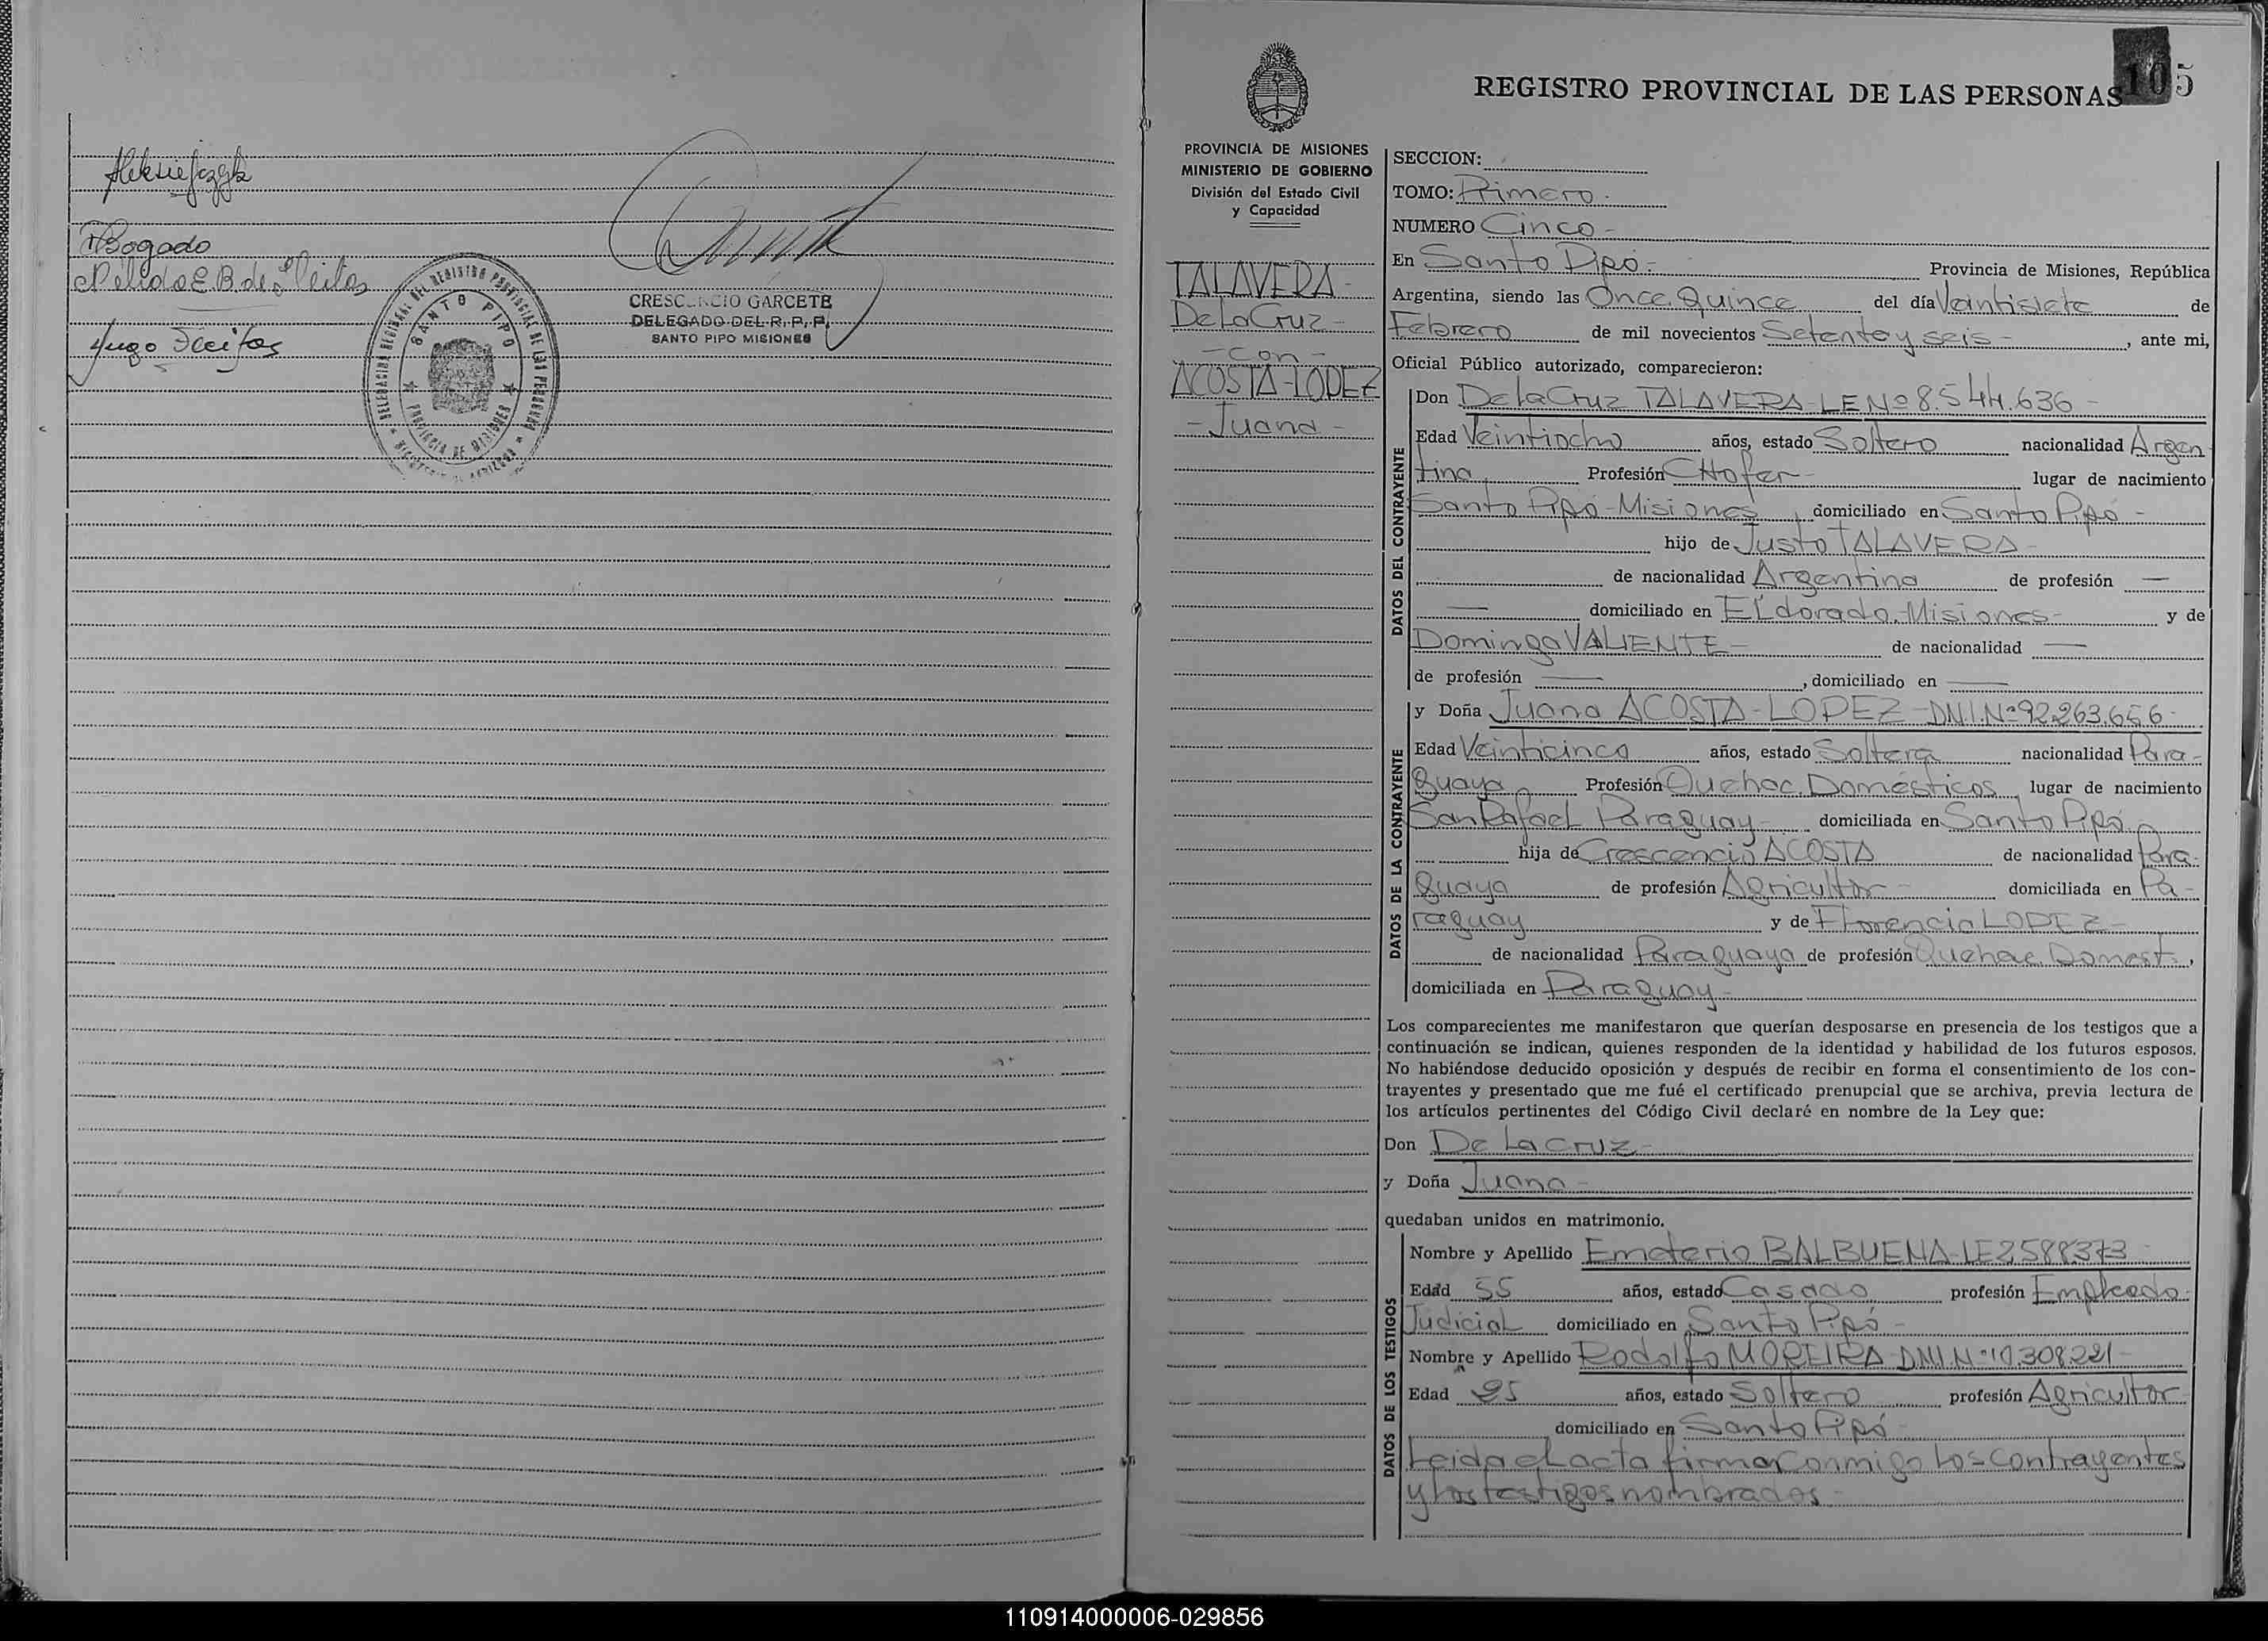 Bogado
Nélida E. B. de Fleitas
Hugo Fleitas
DELEGACION REGIONAL DEL REGISTRO PROVINCIAL DE LAS PERSONAS
SANTO PIPO
PROVINCIA DE MISIONES
CRESCENCIO GARCETE
DELEGADO DEL R. P. P.
SANTO PIPO MISIONES
105
REGISTRO PROVINCIAL DE LAS PERSONAS
PROVINCIA DE MISIONES
MINISTERIO DE GOBIERNO
División del Estado Civil
y Capacidad
TALAVERA-
De La Cruz-
-con-
ACOSTA-LOPEZ
-Juana-
SECCION:
TOMO: Primero-
NUMERO Cinco-
En Santo Pipó- Provincia de Misiones, República
Argentina, siendo las Once Quince del día Veintisiete de
Febrero de mil novecientos Setenta y seis-, ante mi,
Oficial Público autorizado, comparecieron:
DATOS DEL CONTRAYENTE
Don De la Cruz TALAVERA-LE Nº 8.544.636-
Edad Veintiocho años, estado Soltero nacionalidad Argen
tina Profesión CHofer- lugar de nacimiento
Santo Pipó-Misiones, domiciliado en Santo Pipó-
hijo de Justo TALAVERA-
de nacionalidad Argentina de profesión —
— domiciliado en El dorado.Misiones- y de
Dominga VALIENTE- de nacionalidad —
de profesión —, domiciliado en —
DATOS DE LA CONTRAYENTE
y Doña Juana ACOSTA-LOPEZ-DNI.Nº 92.263.656-
Edad Veinticinco años, estado Soltera nacionalidad Para-
guaya Profesión Quehac. Domésticos lugar de nacimiento
San Rafael Paraguay- domiciliada en Santo Pipó
hija de Crescencio ACOSTA de nacionalidad Para-
guaya de profesión Agricultor- domiciliada en Pa-
raguay y de Florencia LOPEZ-
de nacionalidad Paraguaya de profesión Quehac. Domest.,
domiciliada en Paraguay-
Los comparecientes me manifestaron que querían desposarse en presencia de los testigos que a
continuación se indican, quienes responden de la identidad y habilidad de los futuros esposos.
No habiéndose deducido oposición y después de recibir en forma el consentimiento de los con-
trayentes y presentado que me fué el certificado prenupcial que se archiva, previa lectura de
los artículos pertinentes del Código Civil declaré en nombre de la Ley que:
Don De La Cruz-
y Doña Juana-
quedaban unidos en matrimonio.
DATOS DE LOS TESTIGOS
Nombre y Apellido Emeterio BALBUENA-LE 2588373-
Edad 55 años, estado Casado profesión Empleado-
Judicial domiciliado en Santo Pipó-
Nombre y Apellido Rodolfo MOREIRA-DNI.Nº 10.308.221-
Edad 25 años, estado Soltero profesión Agricultor
domiciliado en Santo Pipó-
Leida el acta firman conmigo los contrayentes
y los testigos nombrados-
110914000006-029856